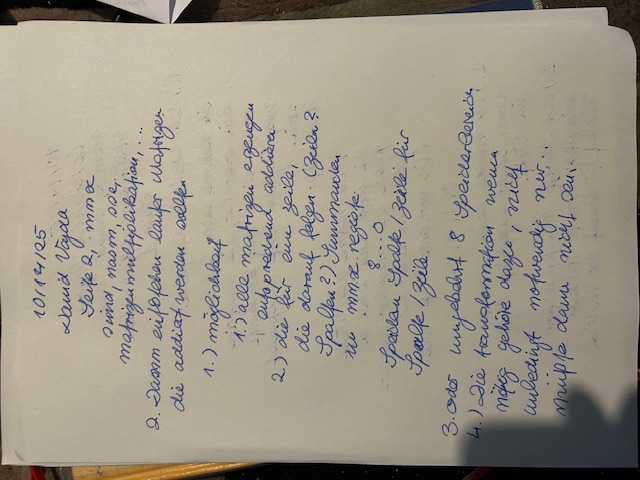 10/14/25
David Vajda
Seite 2, mmx
simd, naom, sse,
matrizenmultiplikation, ...
2. Dann entstehen lauter Matrizen
die addiert werden sollen
1.) möglichkeit
1.) alle matrizen erzeugen
entsprechend addieren
2) die für eine zeile,
die darauf folgen. (Zeilen?
Spalten?) Summanden
in mmx register
8...0
Speichern Spalte/zeile für
Spalte/Zeile
3. oder umgekehrt 8 Speicherbereich
4.) Die transformation wenn
nötig gehöre dazu, nicht
unbedingt notwendig nur...
müsste dann nicht sein..